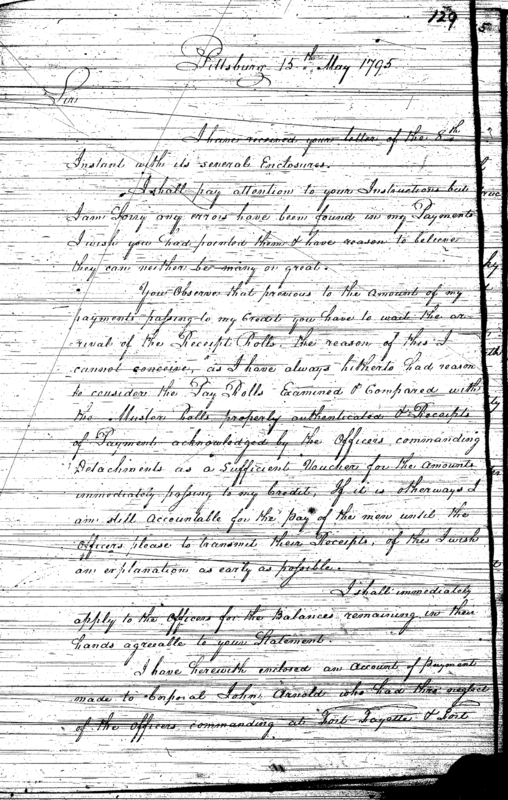 129
Pittsburg 15th May 1795
Sir
I have received your letter of the 8th
Instant with its several Enclosures.
I shall pay attention to your Instructions but
I am Sorry any errors have been found in my Payments
I wish you had pointed them & have reason to believe
they can neither be many or great.
You Observe that previous to the Amount of my
payments passing to my Credit you have to wait the ar-
rival of the Receipt Rolls. the reason of this I
cannot conceive, as I have always hitherto had reason
to consider the Pay Rolls Examined & Compared with
the Muster Rolls properly authenticated & Receipts
of Payment acknowledged by the Officers commanding
Detachments as a Sufficient Voucher for the Amounts
immediately passing to my Credit, If it is otherways I
am still Accountable for the pay of the men until the
Officers please to transmit their Receipts, of this I wish
an explanation as early as possible.
I shall immediately
apply to the Officers for the Balances remaining in their
hands agreable to your Statement.
I have herewith enclosed an Account of payment
made to Corporal John Arnold who had thro neglect
of the officers commanding at Fort Fayette & Fort